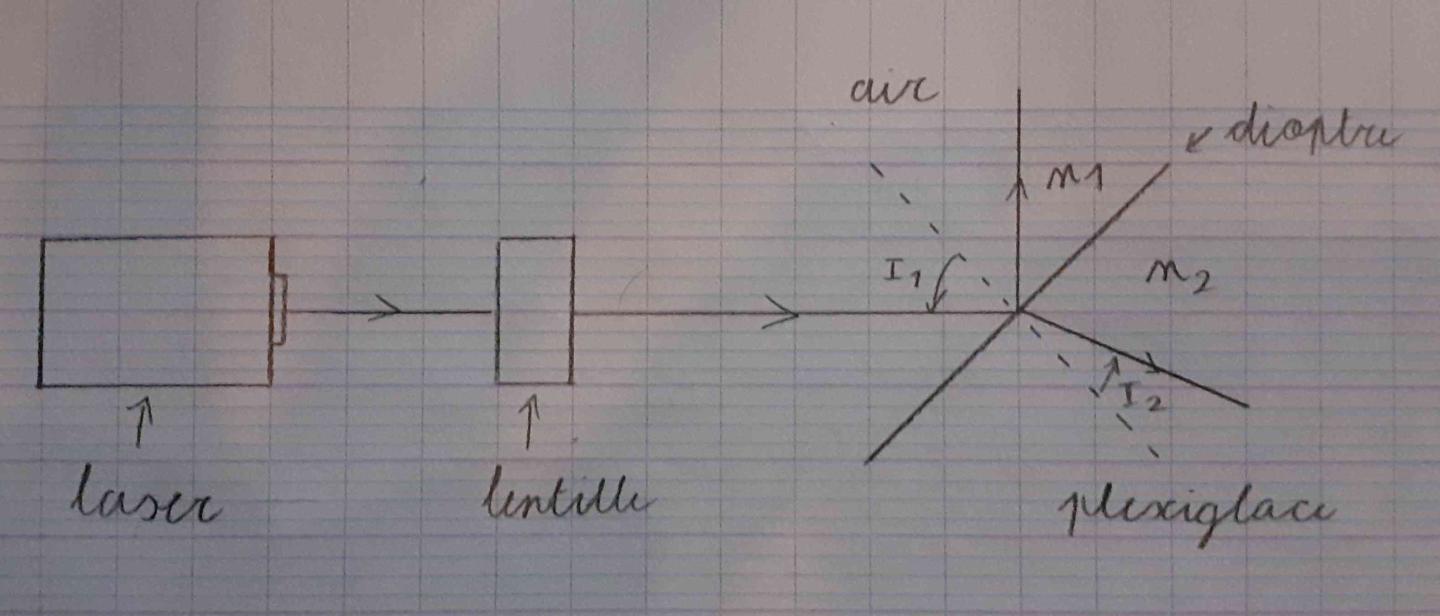 air
dioptre
n1
I1
n2
I2
laser
lentille
plexiglace